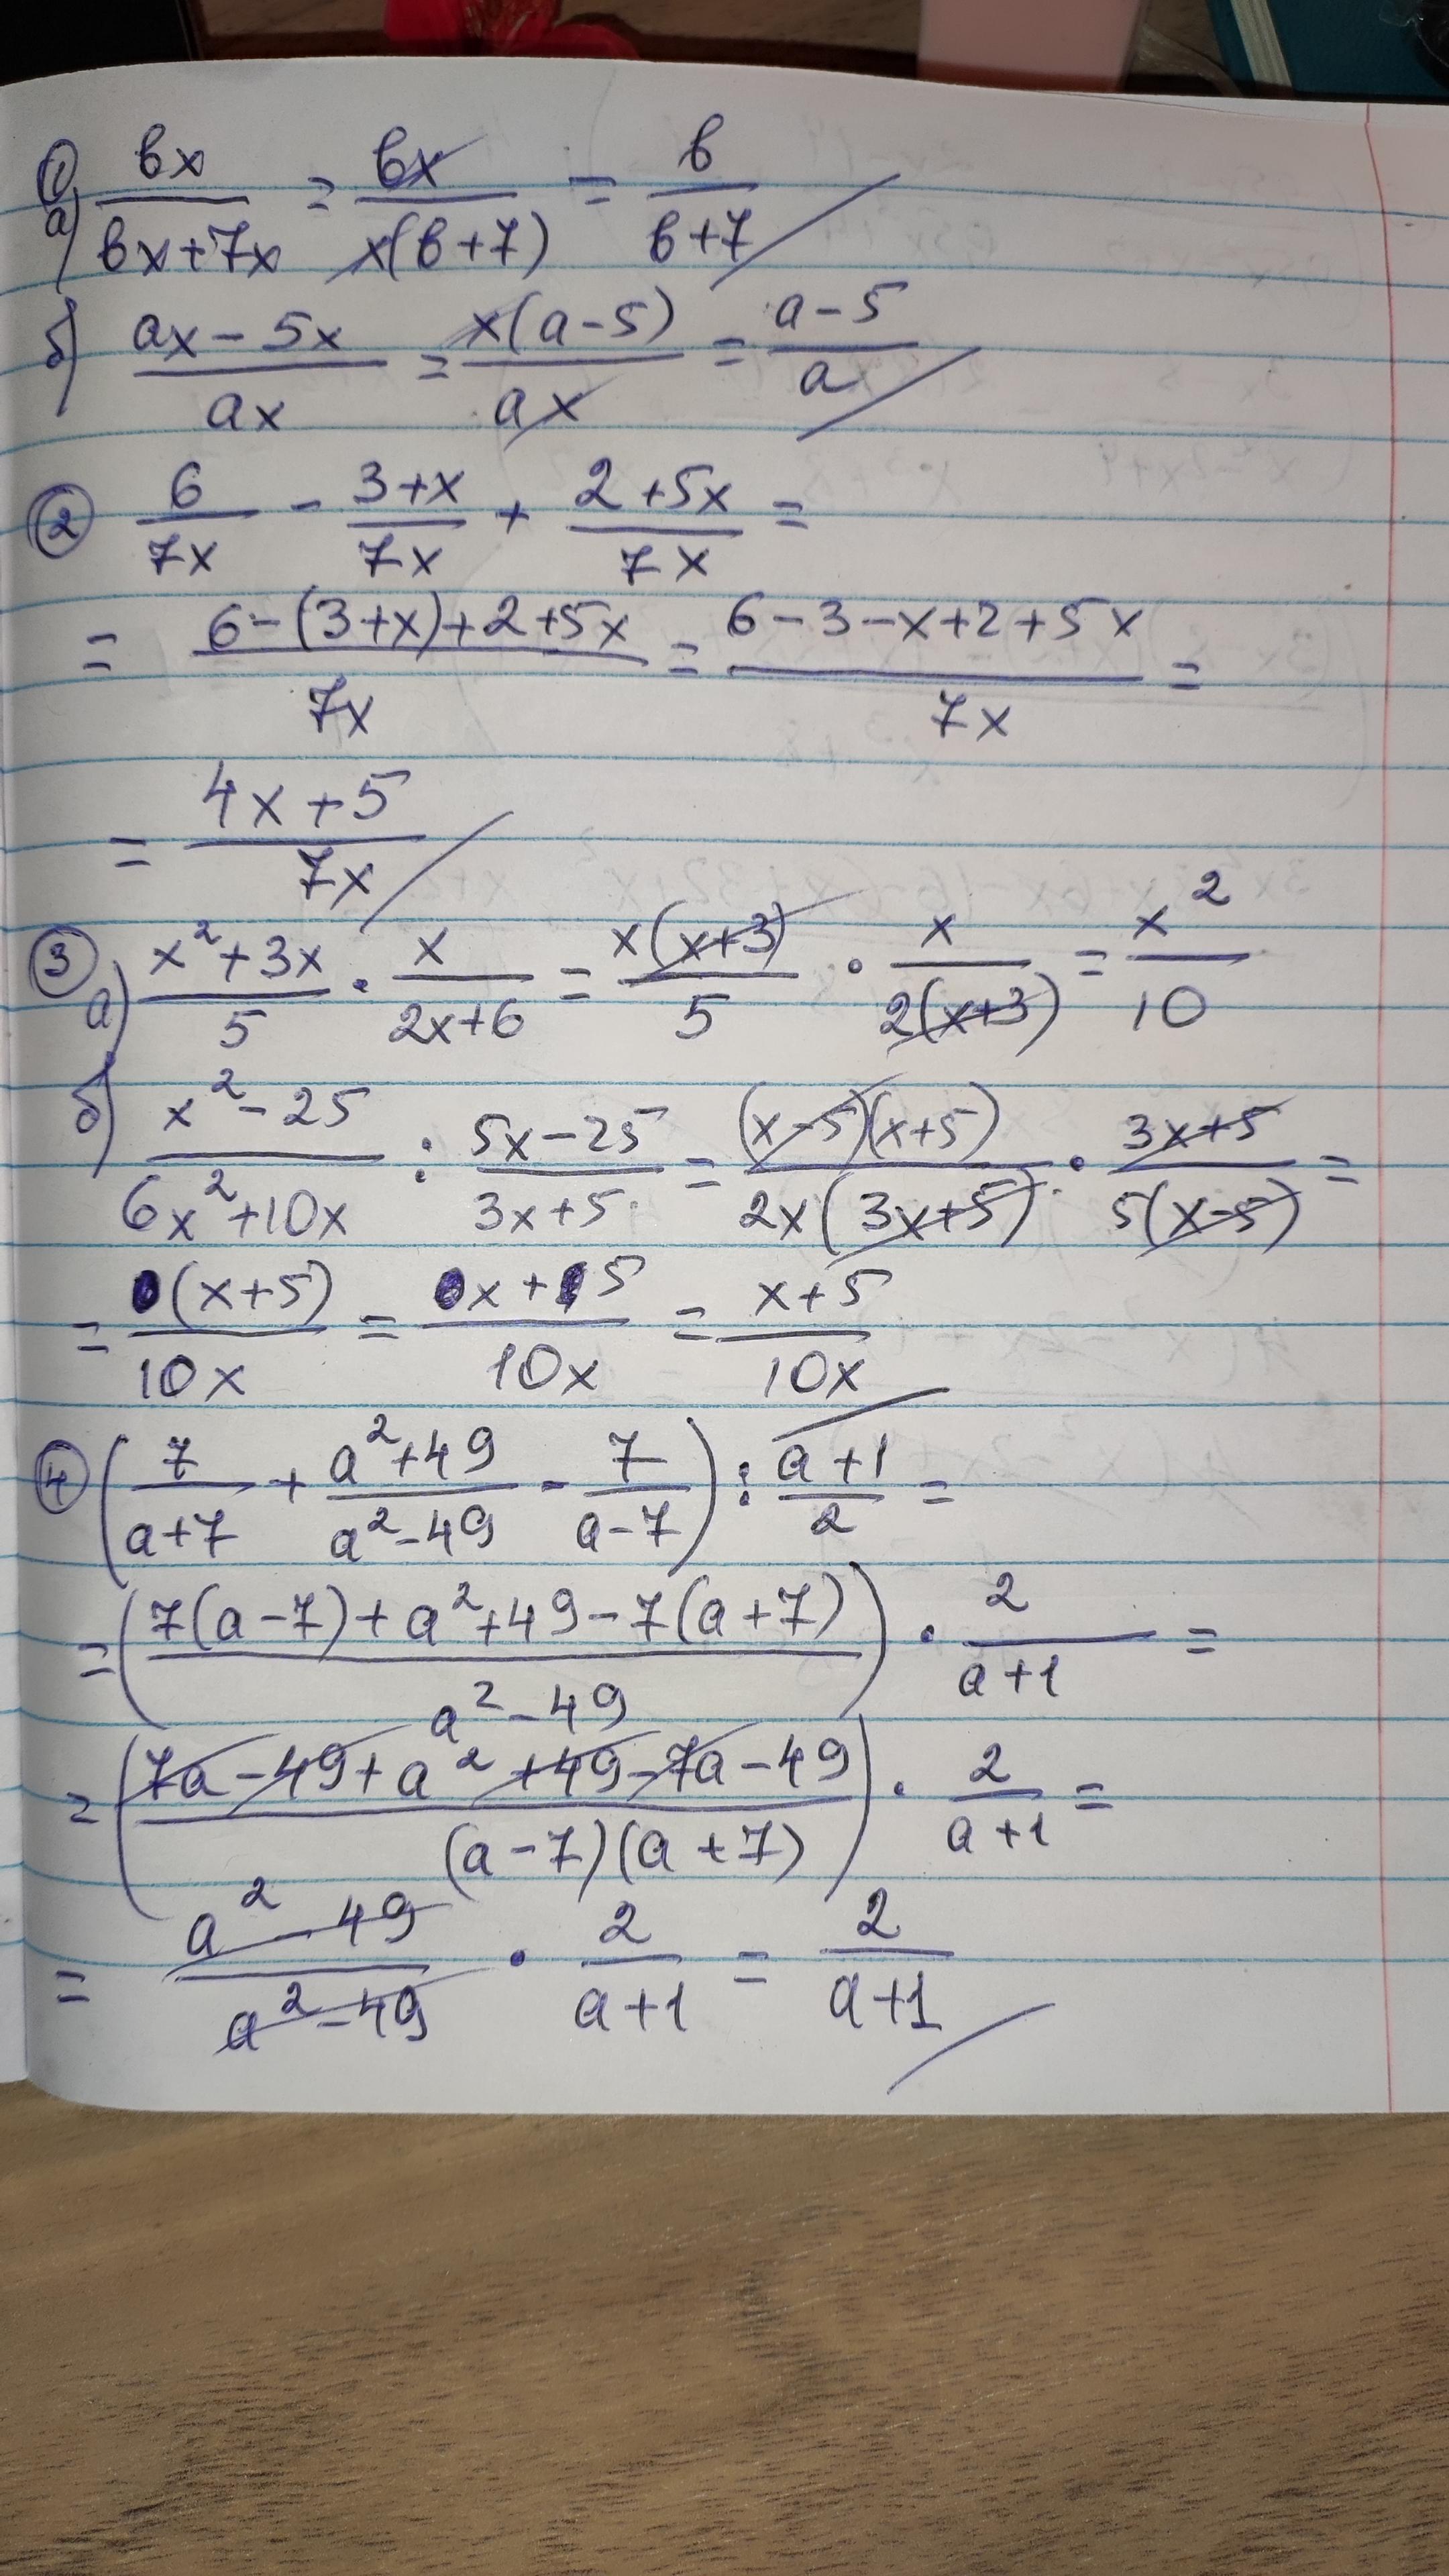 ① а) вx/вx+7x = вx/x(в+7) = в/в+7
б) ax-5x/ax = x(a-5)/ax = a-5/a
② 6/7x - 3+x/7x + 2+5x/7x =
= 6-(3+x)+2+5x/7x = 6-3-x+2+5x/7x =
= 4x+5/7x
③ а) x²+3x/5 · x/2x+6 = x(x+3)/5 · x/2(x+3) = x²/10
б) x²-25/6x²+10x : 5x-25/3x+5 = (x-5)(x+5)/2x(3x+5) · 3x+5/5(x-5) =
= (x+5)/10x = x+5/10x = x+5/10x
④ (7/a+7 + a²+49/a²-49 - 7/a-7) : a+1/2 =
= (7(a-7)+a²+49-7(a+7)/a²-49) · 2/a+1 =
= (7a-49+a²+49-7a-49/(a-7)(a+7)) · 2/a+1 =
= a²-49/a²-49 · 2/a+1 = 2/a+1